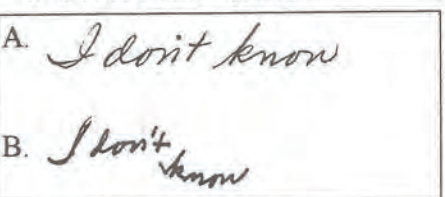 A. I don't know
B. I don't
know